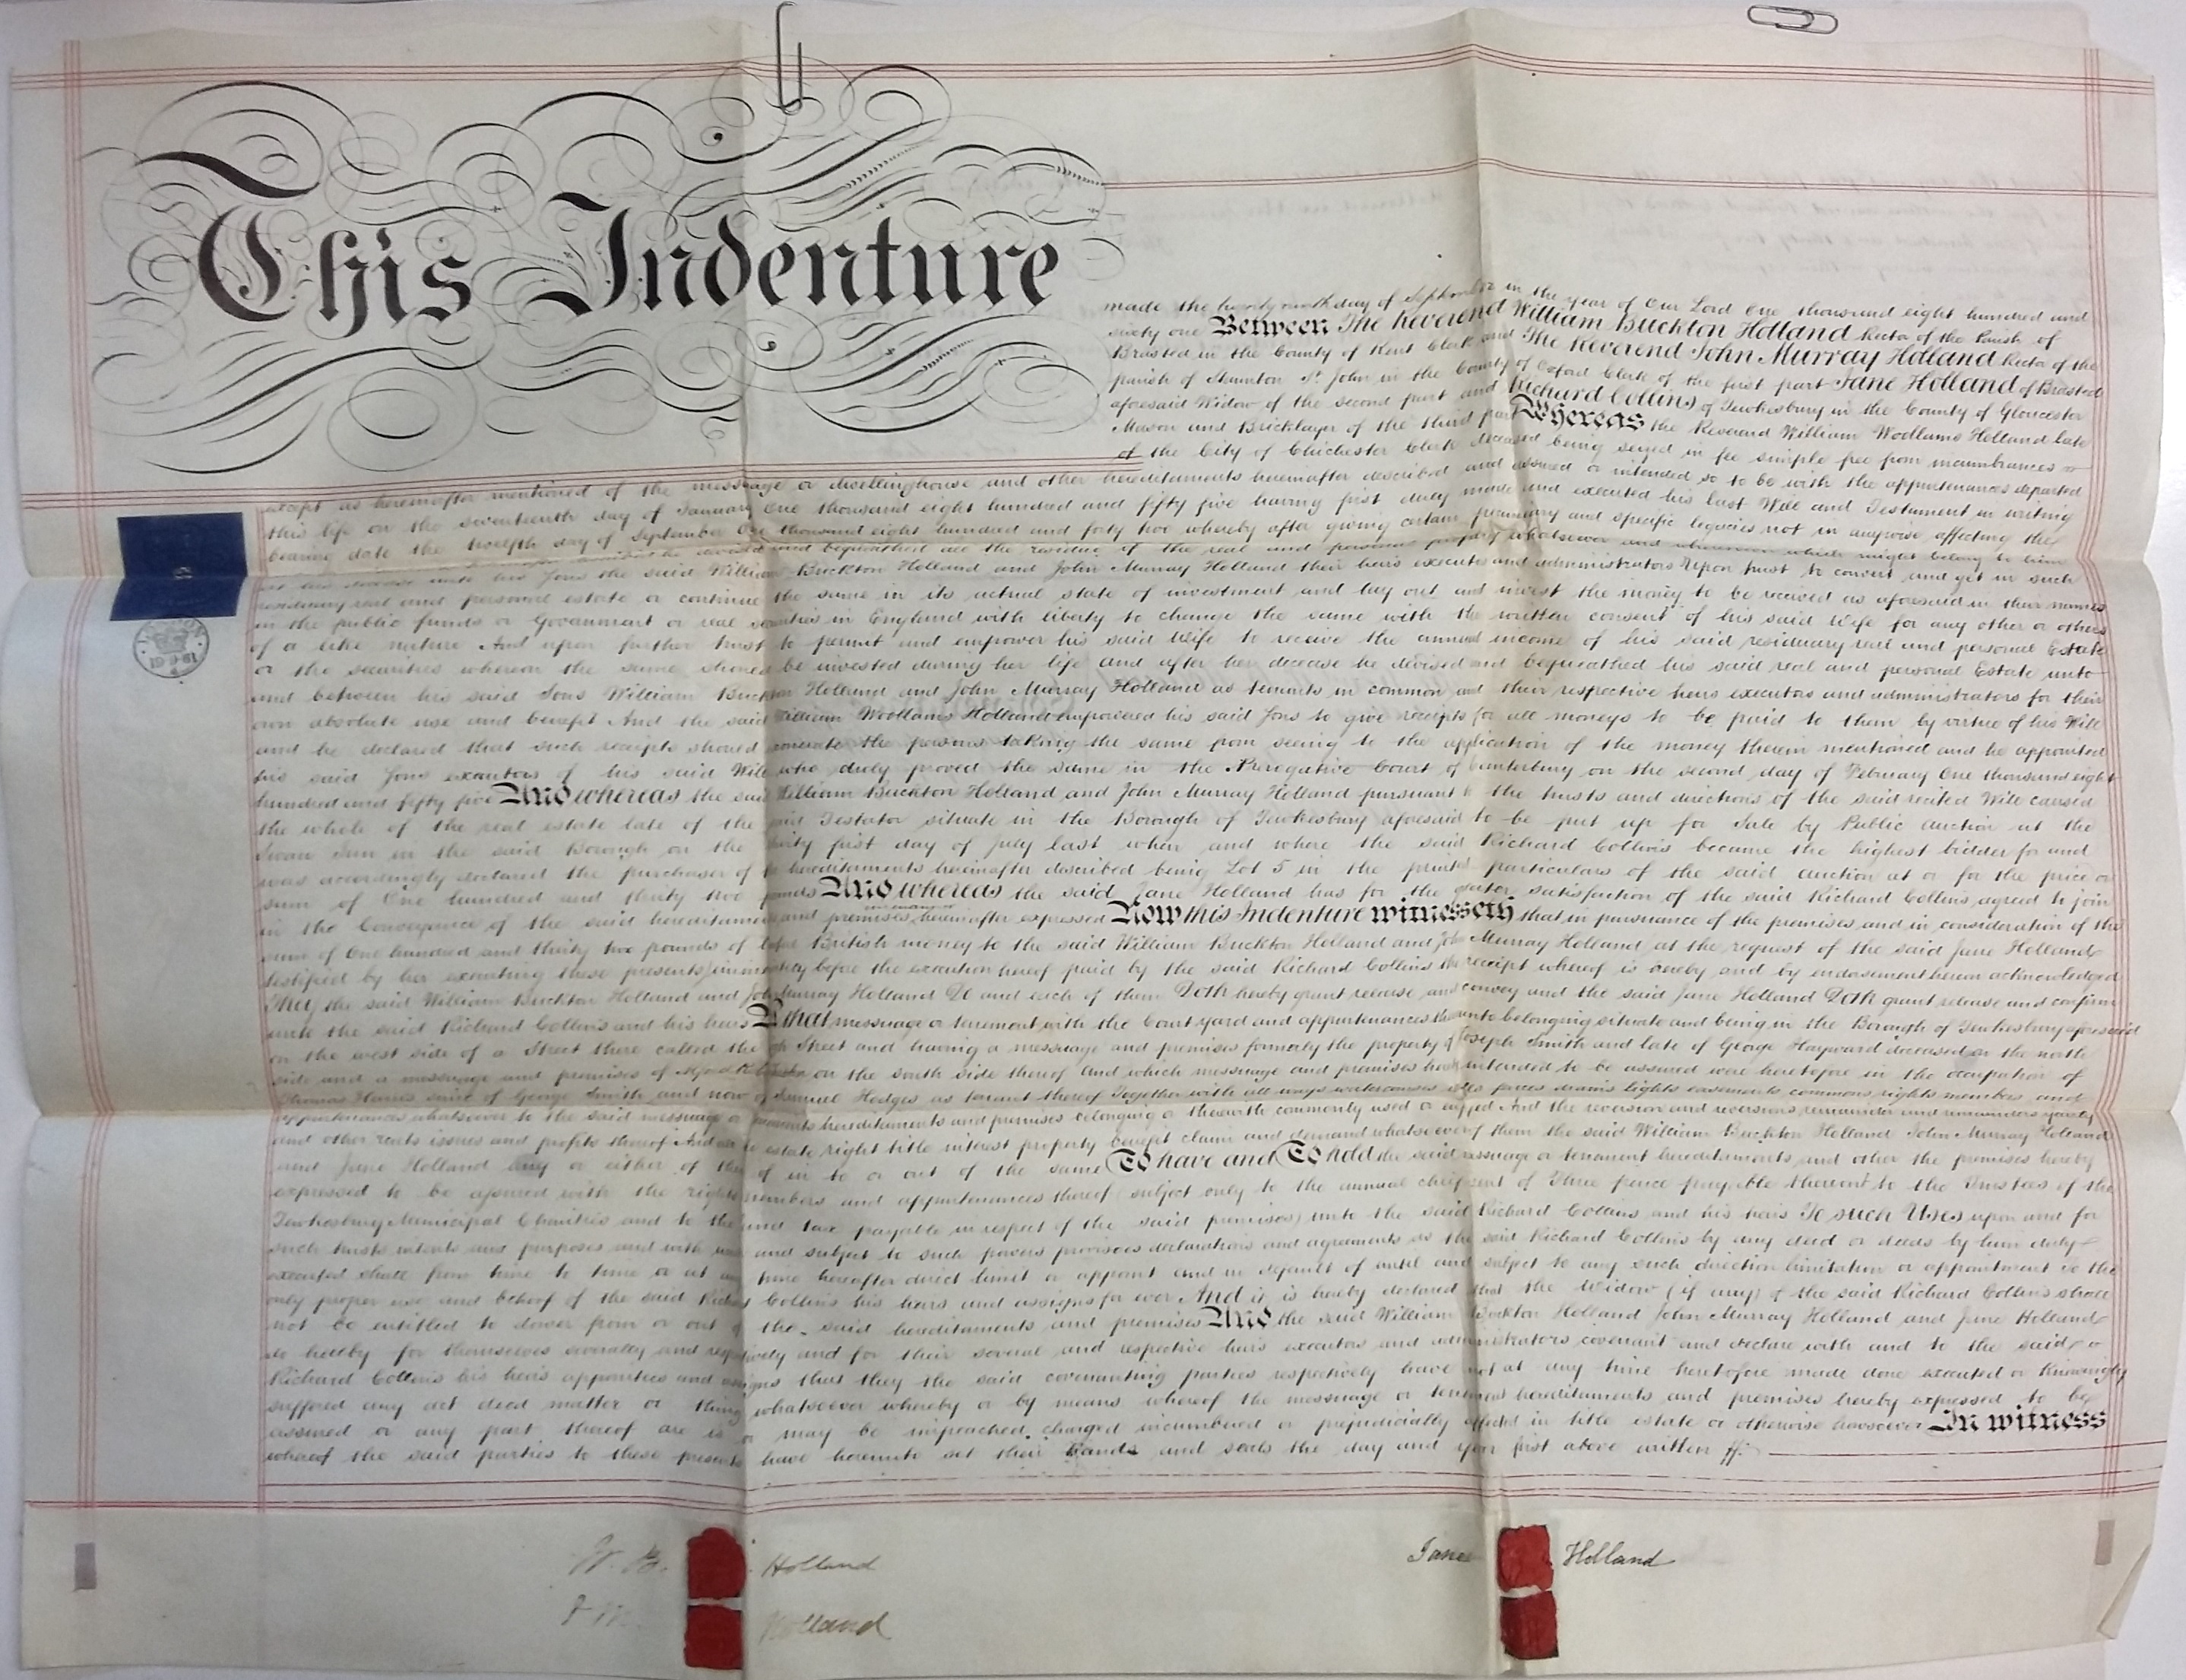 This Indenture
made the twenty ninth day of September in the year of Our Lord One thousand eight hundred and
sixty one Between The Reverend William Buckton Holland Rector of the Parish of
Brasted in the County of Kent Clerk and The Reverend John Murray Holland Rector of the
parish of Staunton St. John in the County of Oxford Clerk of the first part Jane Holland of Brasted
aforesaid Widow of the second part and Richard Collins of Tewkesbury in the County of Gloucester
Mason and Bricklayer of the third part Whereas the Reverend William Woollams Holland late
of the City of Chichester Clerk deceased being seized in fee simple free from incumbrances
except as hereinafter mentioned of the messuage or dwellinghouse and other hereditaments hereinafter described and assured or intended so to be with the appurtenances departed
this life on the seventeenth day of January One thousand eight hundred and fifty five having first duly made and executed his last Will and Testament in writing
bearing date the twelfth day of September One thousand eight hundred and forty two whereby after giving certain pecuniary and specific legacies not in anywise affecting the
he devised and bequeathed all the residue of the real and personal property whatsoever and wheresoever which might belong to him
at his decease unto his Sons the said William Buckton Holland and John Murray Holland their heirs executors and administrators Upon trust to convert and get in such
residuary real and personal estate or continue the same in its actual state of investment and lay out and invest the money to be received as aforesaid in their names
in the public funds or Government or real securities in England with liberty to change the same with the written consent of his said Wife for any other or others
of a like nature And upon further trust to permit and empower his said Wife to receive the annual income of his said residuary real and personal Estate
or the securities whereon the same should be invested during her life and after her decease he devised and bequeathed his said real and personal Estate unto
and between his said Sons William Buckton Holland and John Murray Holland as tenants in common and their respective heirs executors and administrators for their
own absolute use and benefit And the said William Woollams Holland empowered his said Sons to give receipts for all moneys to be paid to them by virtue of his Will
and he declared that such receipts should exonerate the persons taking the same from seeing to the application of the money therein mentioned and he appointed
his said Sons executors of his said Will who duly proved the same in the Prerogative Court of Canterbury on the second day of February One thousand eight
hundred and fifty five And whereas the said William Buckton Holland and John Murray Holland pursuant to the trusts and directions of the said recited Will caused
the whole of the real estate late of the said Testator situate in the Borough of Tewkesbury aforesaid to be put up for Sale by Public Auction at the
Swan Inn in the said Borough on the thirty first day of July last when and where the said Richard Collins became the highest bidder for and
was accordingly declared the purchaser of the hereditaments hereinafter described being Lot 5 in the printed particulars of the said auction at or for the price or
sum of One hundred and thirty two pounds And whereas the said Jane Holland has for the greater satisfaction of the said Richard Collins agreed to join
in the Conveyance of the said hereditaments and premises in manner hereinafter expressed Now this Indenture witnesseth that in pursuance of the premises and in consideration of the
sum of One hundred and thirty two pounds of lawful British money to the said William Buckton Holland and John Murray Holland at the request of the said Jane Holland
testified by her executing these presents immediately before the execution hereof paid by the said Richard Collins the receipt whereof is hereby and by endorsement hereon acknowledged
They the said William Buckton Holland and John Murray Holland Do and each of them Doth hereby grant release and convey and the said Jane Holland Doth grant release and confirm
unto the said Richard Collins and his heirs All that messuage or tenement with the Court yard and appurtenances thereunto belonging situate and being in the Borough of Tewkesbury aforesaid
on the west side of a Street there called the High Street and having a messuage and premises formerly the property of Joseph Smith and late of George Hayward deceased on the north
side and a messuage and premises of on the south side thereof and which messuage and premises intended to be assured were heretofore in the occupation of
Thomas Harris since of George Smith and now of Samuel Hodges as tenant thereof Together with all ways watercourses drains lights easements commons rights members and
appurtenances whatsoever to the said messuage or tenements hereditaments and premises belonging or therewith commonly used or enjoyed And the reversion and reversions remainder and remainders yearly
and other rents issues and profits thereof And all the estate right title interest property benefit claim and demand whatsoever of them the said William Buckton Holland John Murray Holland
and Jane Holland any or either of them of in to or out of the same To have and To hold the said messuage or tenement hereditaments and other the premises hereby
expressed to be assured with the rights members and appurtenances thereof (subject only to the annual chief rent of Three pence payable thereout to the Trustees of the
Tewkesbury Municipal Charities and to the land tax payable in respect of the said premises) unto the said Richard Collins and his heirs To such Uses upon and for
such trusts intents and purposes and with and subject to such powers provisoes declarations and agreements as the said Richard Collins by any deed or deeds by him duly
executed shall from time to time or at any time hereafter direct limit or appoint and in default of until and subject to any such direction limitation or appointment to the
only proper use and behoof of the said Richard Collins his heirs and assigns for ever And it is hereby declared that the Widow (if any) of the said Richard Collins shall
not be entitled to dower from or out of the said hereditaments and premises And the said William Buckton Holland John Murray Holland and Jane Holland
do hereby for themselves severally and respectively and for their several and respective heirs executors and administrators covenant and declare with and to the said
Richard Collins his heirs appointees and assigns that they the said covenanting parties respectively have not at any time heretofore made done executed or knowingly
suffered any act deed matter or thing whatsoever whereby or by means whereof the messuage or tenement hereditaments and premises hereby expressed to be
assured or any part thereof are is or may be impeached charged incumbered or prejudicially affected in title estate or otherwise howsoever In witness
whereof the said parties to these presents have hereunto set their hands and seals the day and year first above written
W. B. Holland
Jane Holland
J M Holland